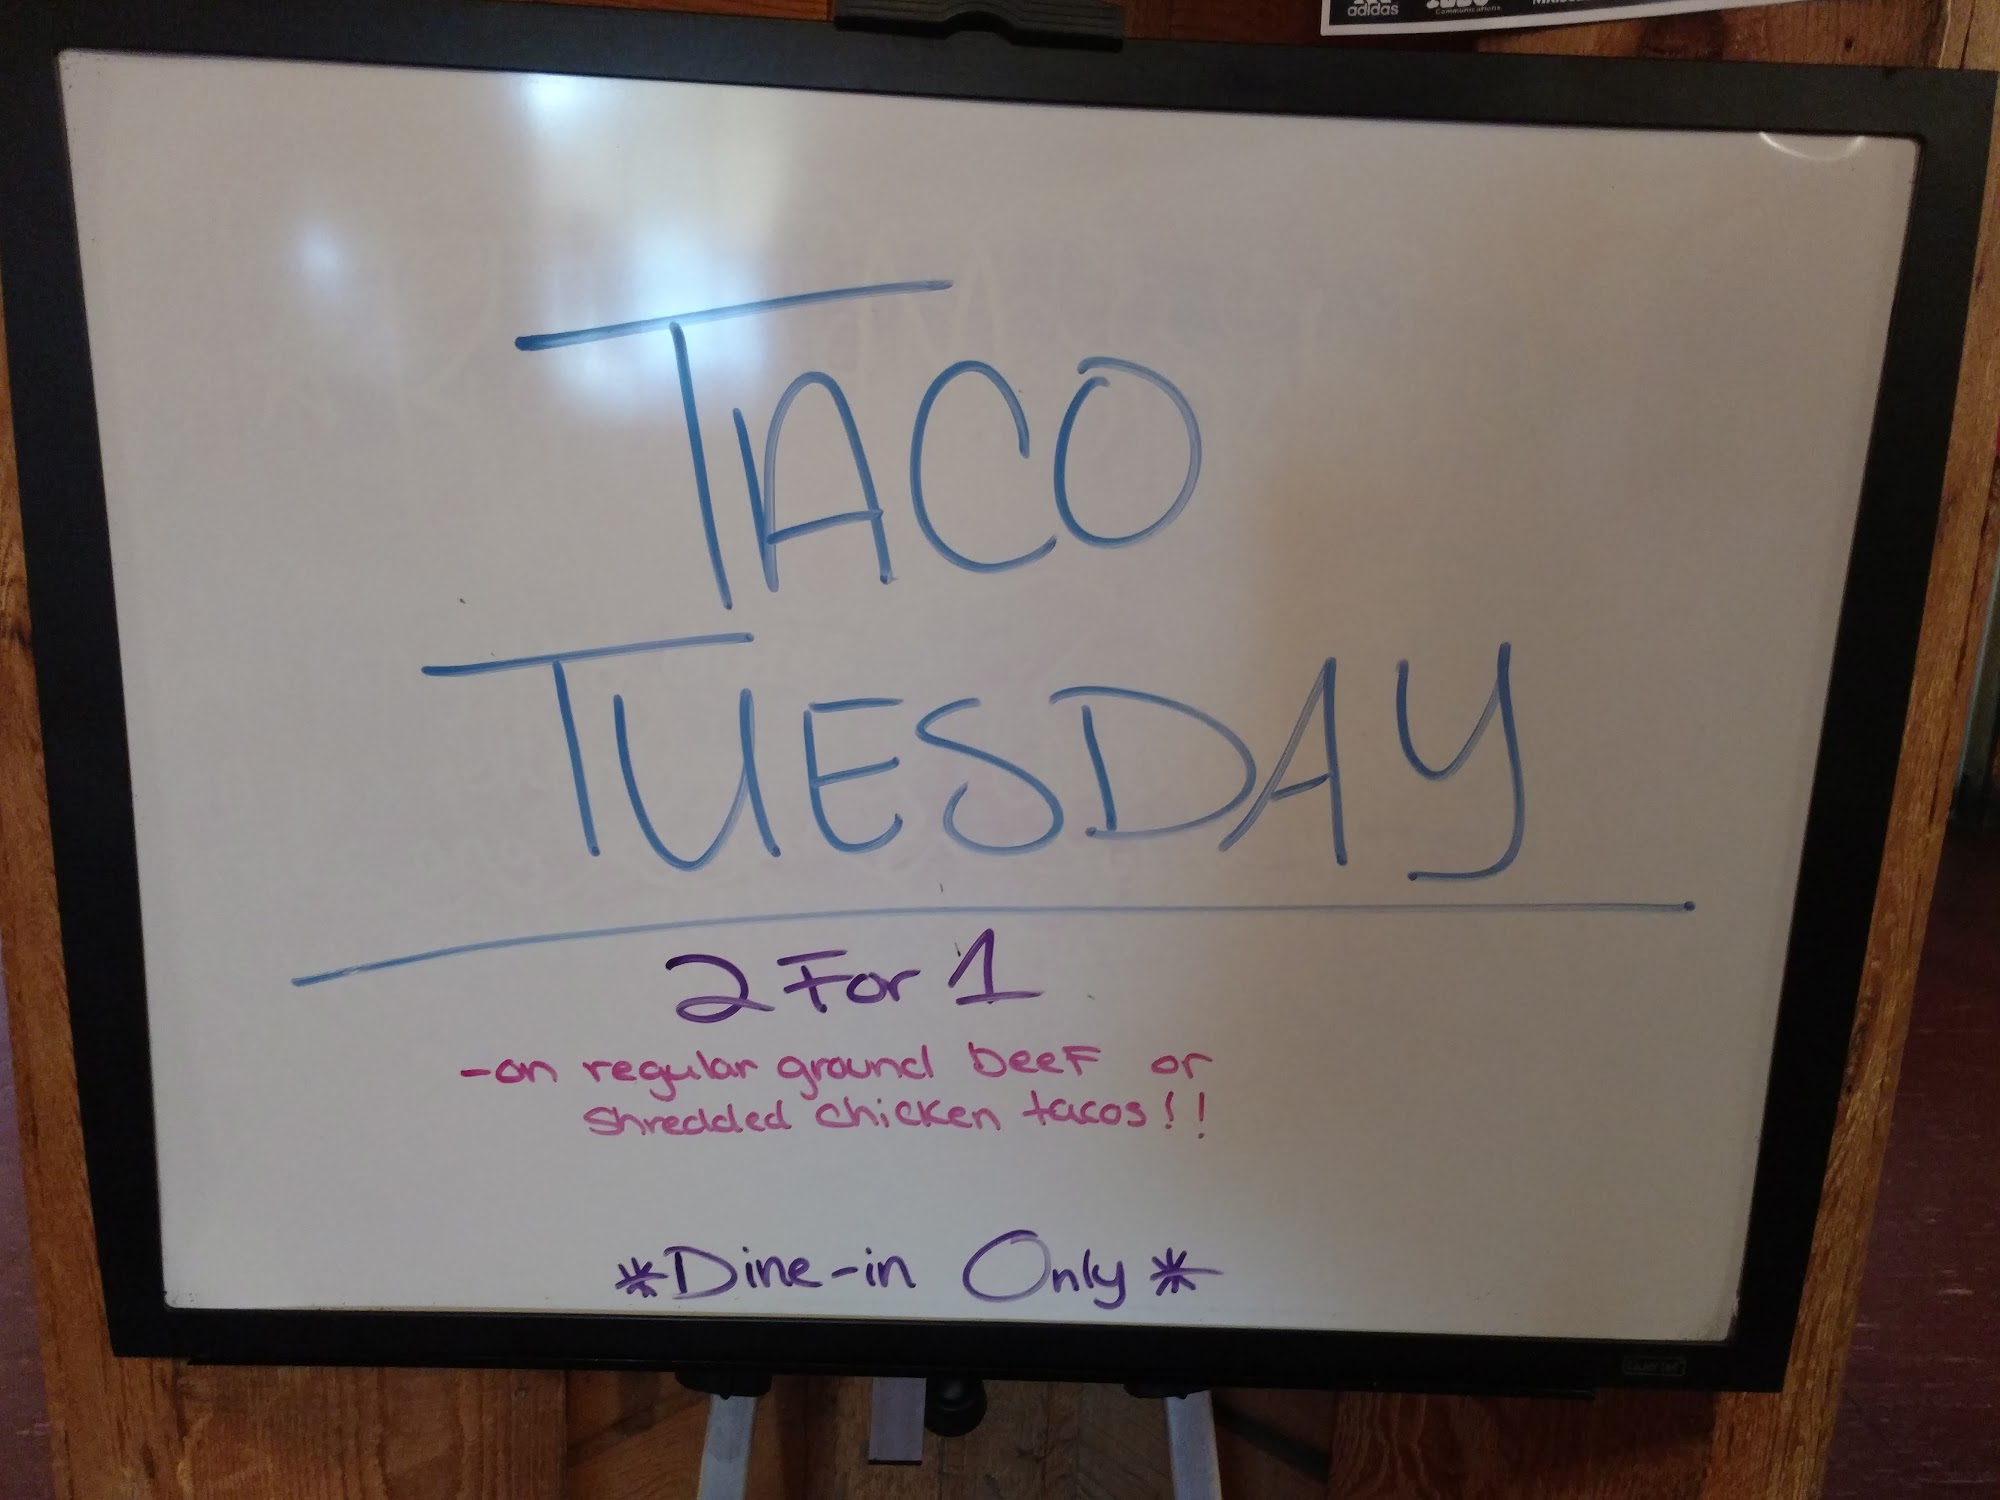 adidas
Communications
TACO
TUESDAY
2 For 1
-on regular ground beef or
shredded chicken tacos!!
*Dine-in Only*
Quartet